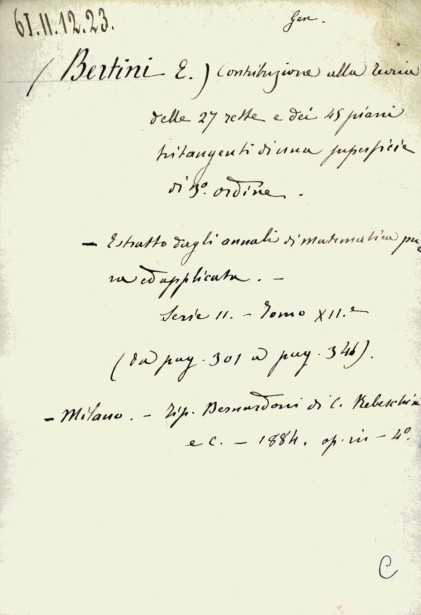 61.11.12.23.
Gen.
(Bertini E.) Contribuzione alla teoria
delle 27 rette e dei 45 piani
tritangenti di una superficie
di 3º. ordine.
— Estratto dagli annali di matematica pu
ra ed applicata. —
Serie II. — Tomo XII.º
(da pag. 301 a pag. 346).
— Milano. — Tip. Bernardoni di C. Rebeschini
e C. — 1884. op. in — 4º.
C